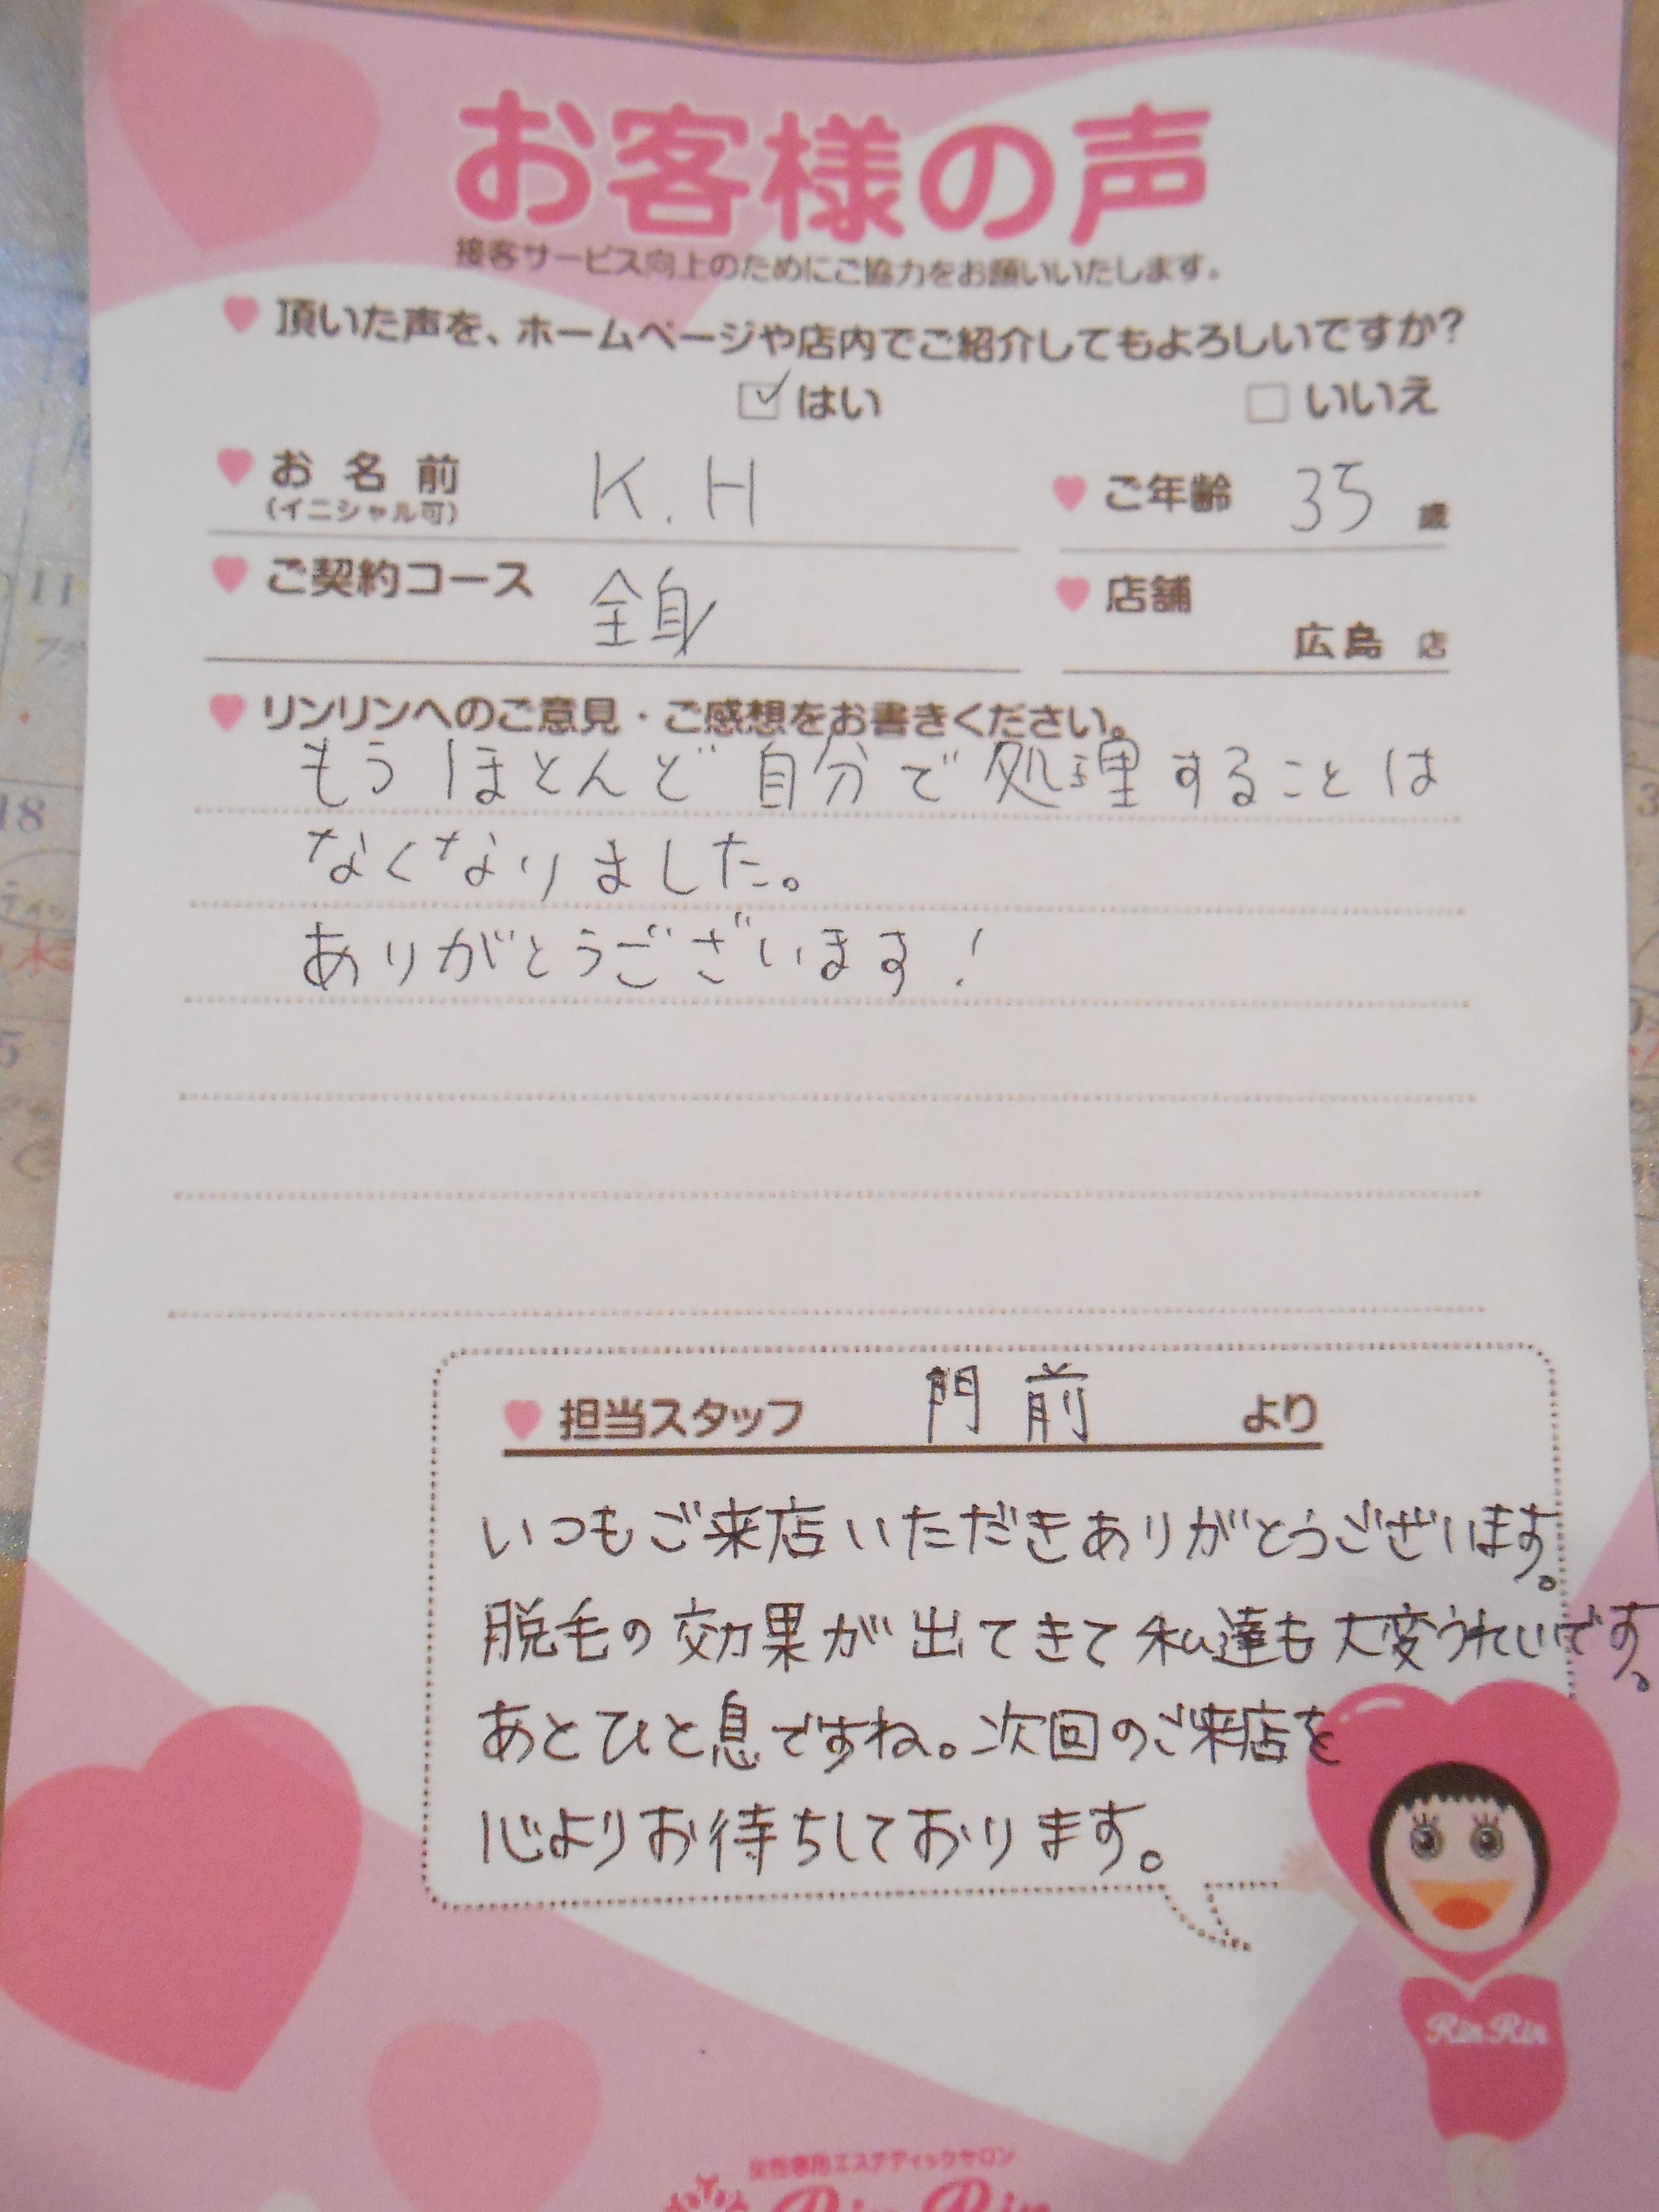 お客様の声
接客サービス向上のためにご協力をお願いいたします。
頂いた声を、ホームページや店内でご紹介してもよろしいですか?
はい いいえ
お名前 K.H ご年齢 35 歳
(イニシャル可)
ご契約コース 全身 店舗
広島 店
リンリンへのご意見・ご感想をお書きください。
もうほとんど自分で処理することは
なくなりました。
ありがとうございます!
担当スタッフ 門前 より
いつもご来店いただきありがとうございます。
脱毛の効果が出てきて私達も大変うれしいです。
あとひと息ですね。次回のご来店を
心よりお待ちしております。
RinRin
女性専用エステティックサロン
Rin Rin